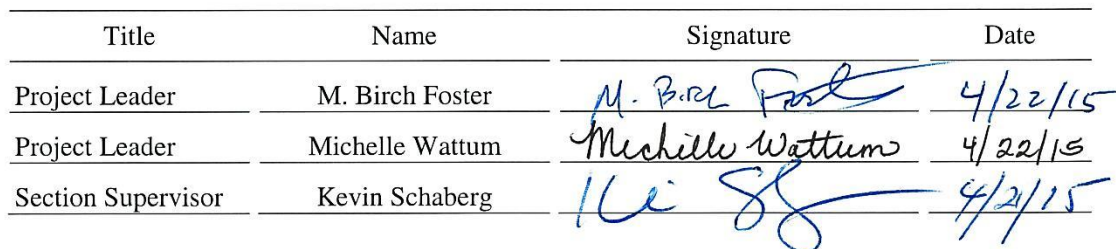 Title Name Signature Date
Project Leader M. Birch Foster M. Birch Foster 4/22/15
Project Leader Michelle Wattum Michelle Wattum 4/22/15
Section Supervisor Kevin Schaberg 4/21/15